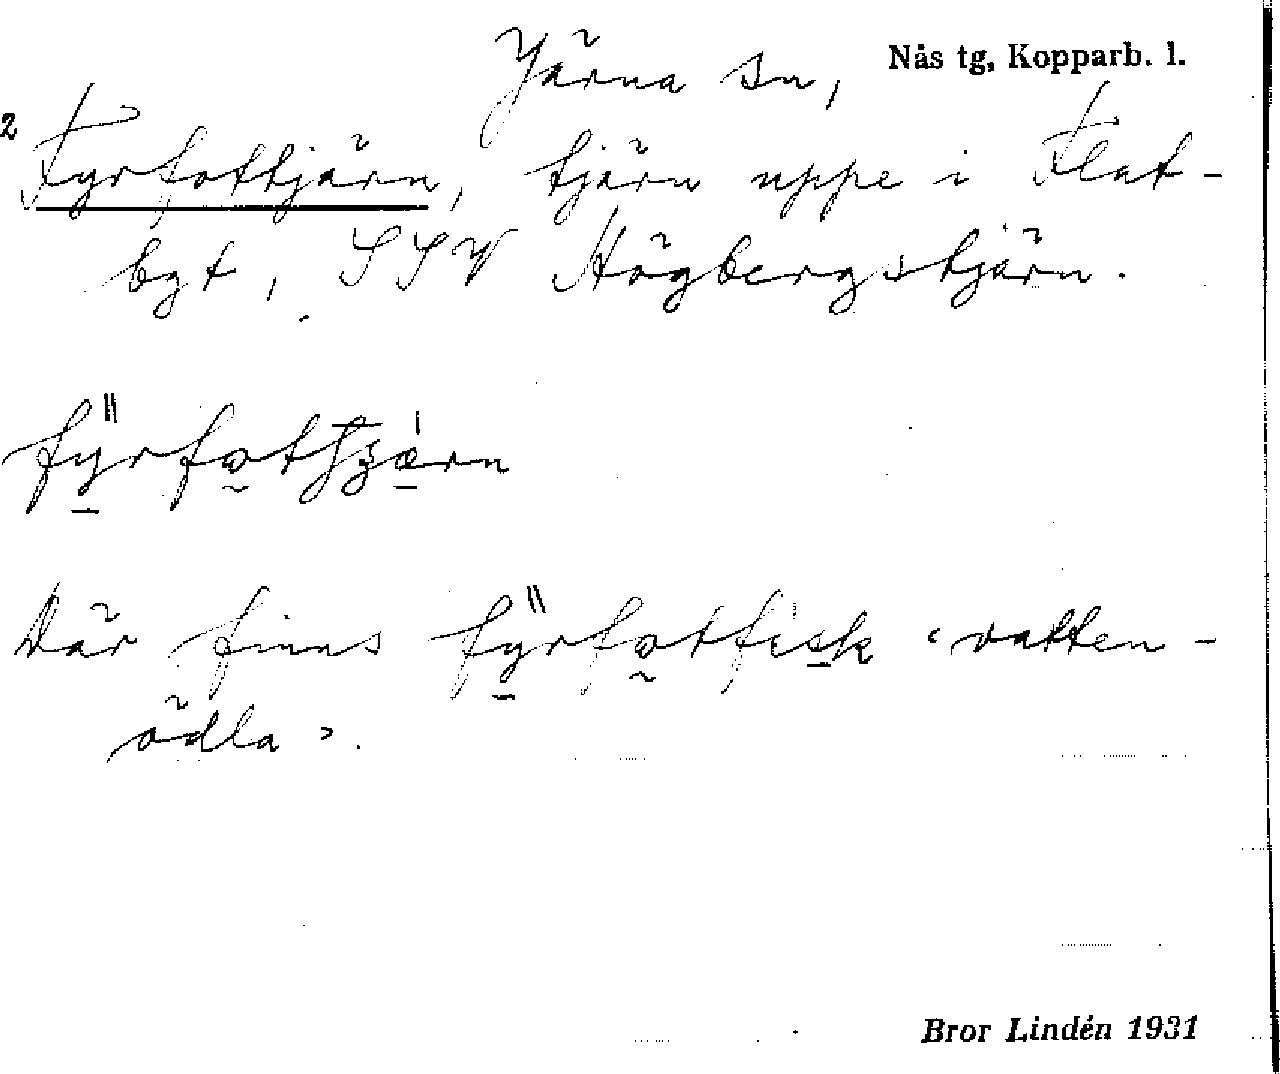 Järna sn, Nås tg, Kopparb. l.
2 Fyrfottjärn, tjärn uppe i Flat-
bgt, SSV Högbergstjärn.
Där finns fyrfotfisk ‹vatten-
ödla›.
Bror Lindén 1931